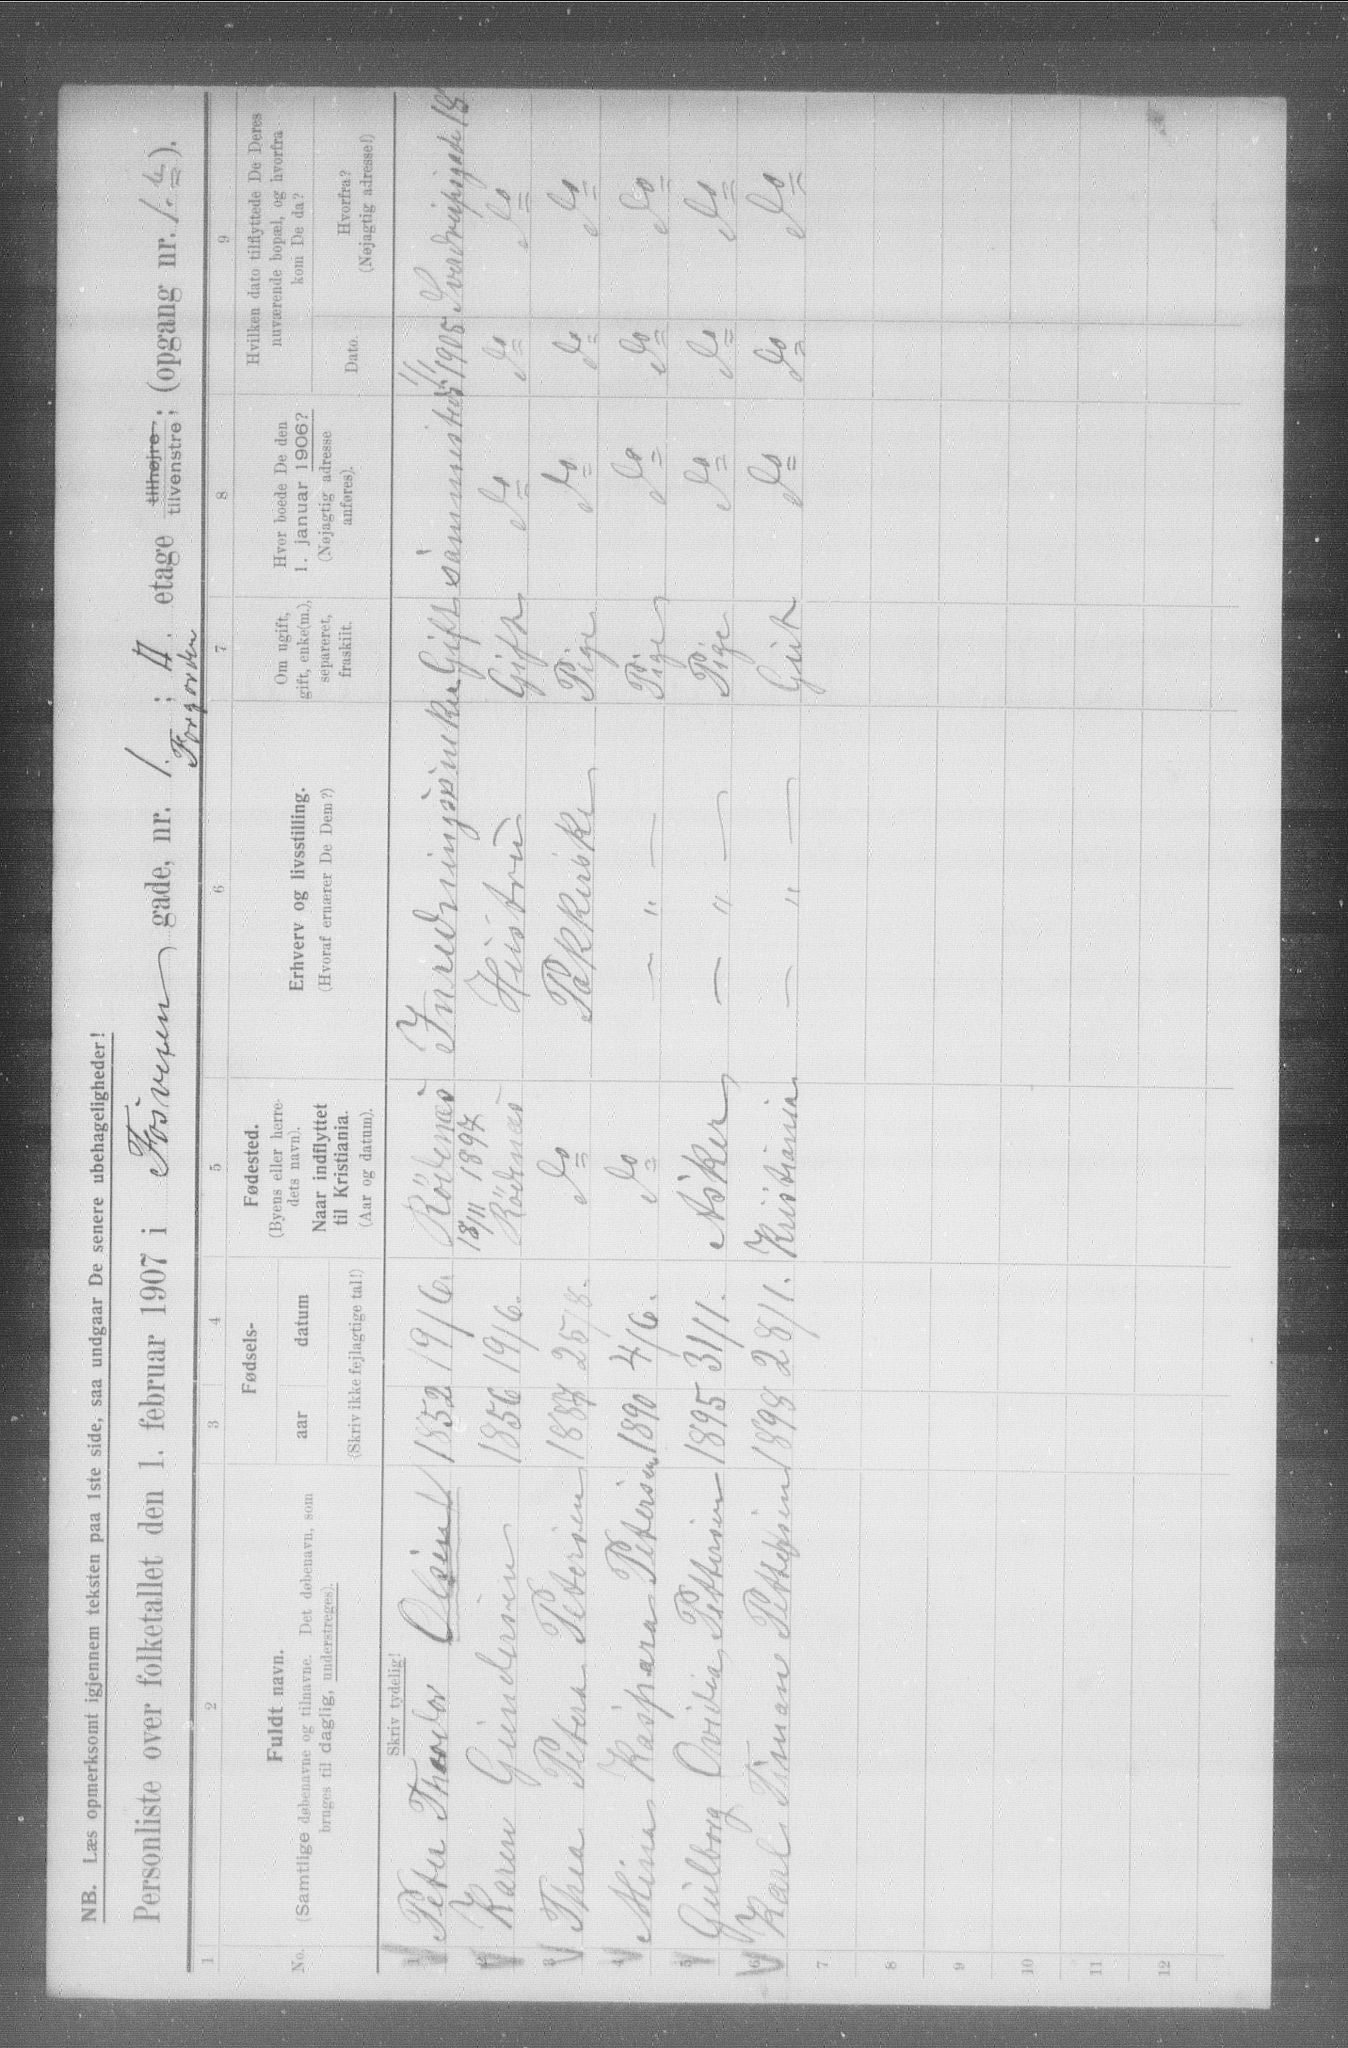 NB. Læs opmerksomt igjennem teksten paa 1ste side, saa undgaar De senere ubehageligheder!
Personliste over folketallet den 1. februar 1907 i Fosveien gade, nr. 1. ; II. etage tilhøjre; tilvenstre; (opgang nr. 1.
Forgorden
1 2 3 4 5 6 7 8 9
No.
Fuldt navn.
(Samtlige døbenavne og tilnavne. Det døbenavn, som
bruges til daglig, understreges).
Fødsels-
aar datum
(Skriv ikke fejlagtige tal!)
Fødested.
(Byens eller herre-
dets navn).
Naar indflyttet
til Kristiania.
(Aar og datum).
Erhverv og livsstilling.
(Hvoraf ernærer De Dem?)
Om ugift,
gift, enke(m.),
separeret,
fraskilt.
Hvor boede De den
1. januar 1906?
(Nøjagtig adresse
anføres).
Hvilken dato tilflyttede De Deres
nuværende bopæl, og hvorfra
kom De da?
Dato.
Hvorfra?
(Nøjagtig adresse!)
Skriv tydelig!
1 Peter Theodor Olsen 1852 19/6. Rödenæs Gift 1/11 1905 18
18/11 1897
2 Karen Gundersen 1856 19/6. Rödenæs Hustru Gift do do do
3 Thea Petera Petersen 1887 25/8. do Pakkerske Pige do do do
4 Mina Kaspara Petersen 1890 4/6. do — " — Pige do do do
5 Gulborg Ovidia Pettersen 1895 31/1. Asker — " — Pige do do do
6 Karl Timane Pettersen 1898 28/1. Kristiania — " — Gut do do do
7
8
9
10
11
12